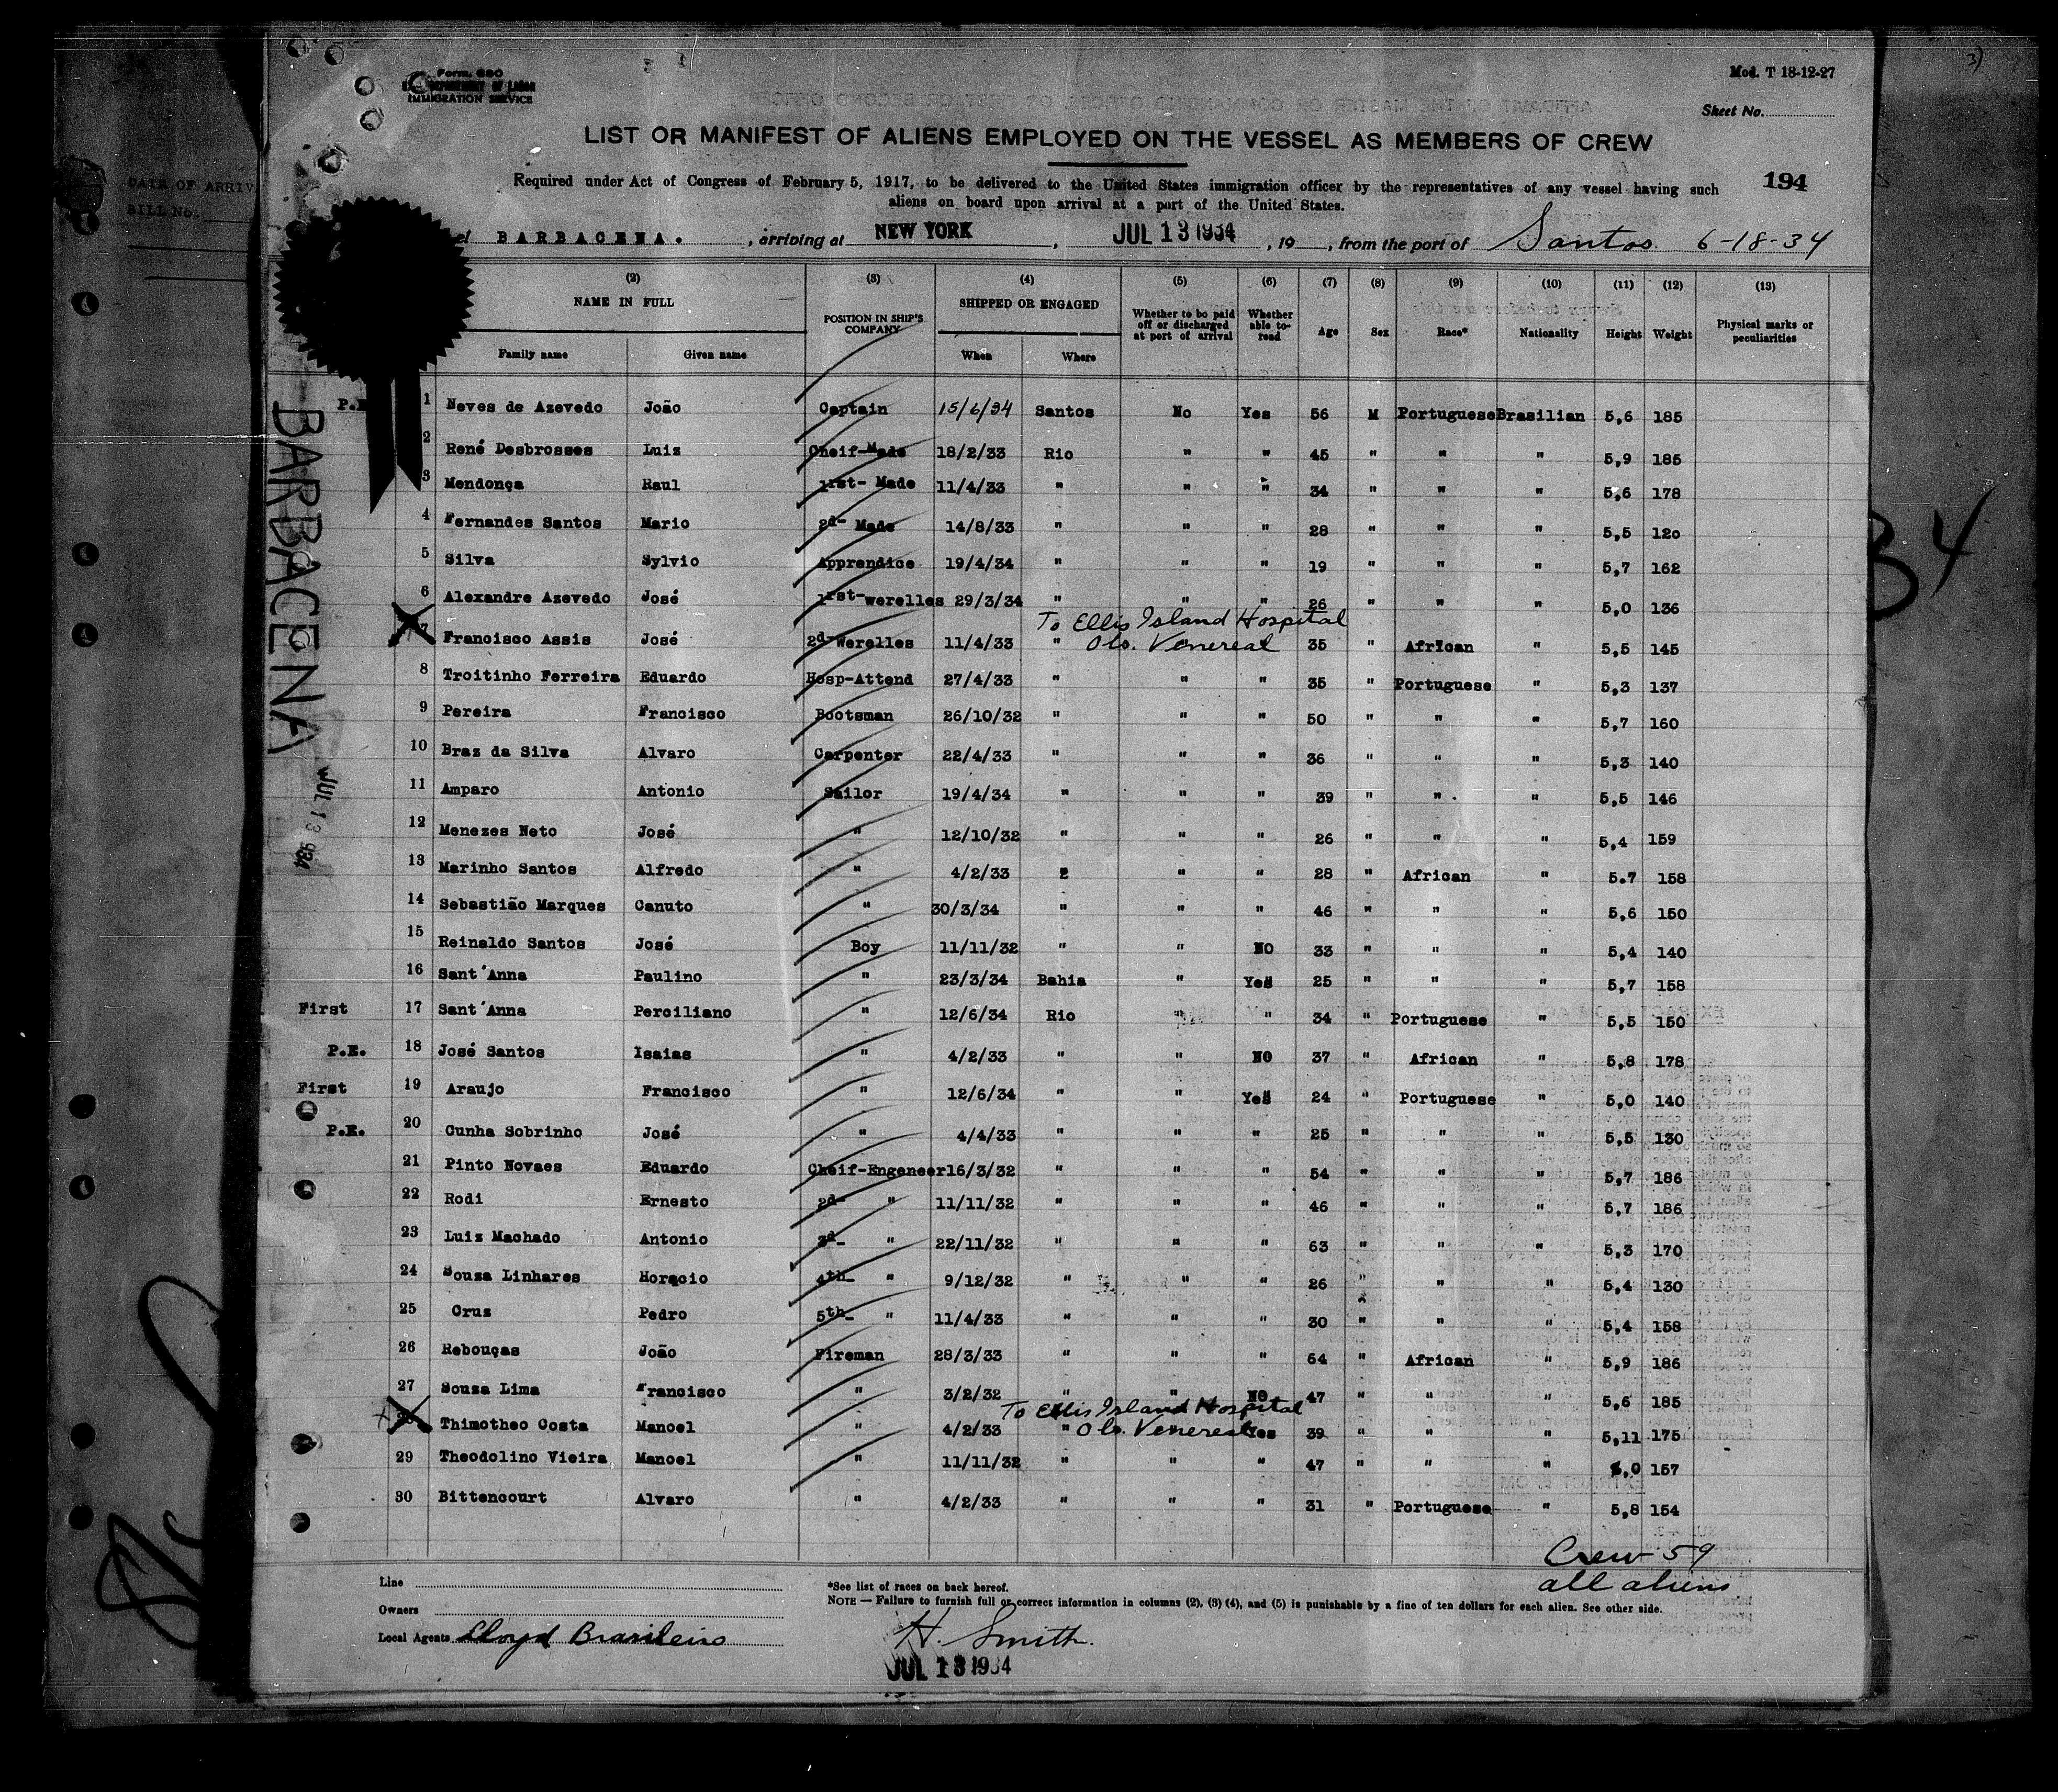 Form. 680
DEPARTMENT OF LABOR
IMMIGRATION SERVICE
Mod. T 18-12-27
Sheet No.
LIST OR MANIFEST OF ALIENS EMPLOYED ON THE VESSEL AS MEMBERS OF CREW
194
Required under Act of Congress of February 5, 1917, to be delivered to the United States immigration officer by the representatives of any vessel having such
aliens on board upon arrival at a port of the United States.
DATE OF ARRIV
BILL No.
el BARBACENA. , arriving at NEW YORK , JUL 13 1934 , 19 , from the port of Santos 6-18-34
(2) (3) (4) (5) (6) (7) (8) (9) (10) (11) (12) (13)
NAME IN FULL POSITION IN SHIP'S COMPANY SHIPPED OR ENGAGED Whether to be paid off or discharged at port of arrival Whether able to read Age Sex Race* Nationality Height Weight Physical marks or peculiarities
Family name Given name When Where
P.E 1 Neves de Azevedo João Captain 15/6/34 Santos No Yes 56 M Portuguese Brasilian 5,6 185
2 René Desbrosses Luiz Cheif-Made 18/2/33 Rio " " 45 " " " 5,9 185
3 Mendonça Raul 1rst- Made 11/4/33 " " " 34 " " " 5,6 178
4 Fernandes Santos Mario 2d- Made 14/8/33 " " " 28 " " " 5,5 120
5 Silva Sylvio Apprendice 19/4/34 " " " 19 " " " 5,7 162
6 Alexandre Azevedo José 1rst-werelles 29/3/34 " " " 26 " " " 5,0 136
To Ellis Island Hospital
7 Francisco Assis José 2d-Werelles 11/4/33 " Obs. Venereal 35 " African " 5,5 145
8 Troitinho Ferreira Eduardo Hosp-Attend 27/4/33 " " " 35 " Portuguese " 5,3 137
9 Pereira Francisco Bootsman 26/10/32 " " " 50 " " " 5,7 160
10 Braz da Silva Alvaro Carpenter 22/4/33 " " " 36 " " " 5,3 140
11 Amparo Antonio Sailor 19/4/34 " " " 39 " " " 5,5 146
12 Menezes Neto José " 12/10/32 " " " 26 " " " 5,4 159
13 Marinho Santos Alfredo " 4/2/33 2 " " 28 " African " 5.7 158
14 Sebastião Marques Canuto " 30/3/34 " " " 46 " " " 5,6 150
15 Reinaldo Santos José Boy 11/11/32 " " NO 33 " " " 5,4 140
16 Sant´Anna Paulino " 23/3/34 Bahia " Yes 25 " " " 5,7 158
First 17 Sant´Anna Perciliano " 12/6/34 Rio " " 34 " Portuguese " 5,5 150
P.E. 18 José Santos Isaias " 4/2/33 " " NO 37 " African " 5,8 178
First 19 Araujo Francisco " 12/6/34 " " Yes 24 " Portuguese " 5,0 140
P.E. 20 Cunha Sobrinho José " 4/4/33 " " " 25 " " " 5,5 130
21 Pinto Novaes Eduardo Cheif-Engeneer 16/3/32 " " " 54 " " " 5,7 186
22 Rodi Ernesto 2d- " 11/11/32 " " " 46 " " " 5,7 186
23 Luiz Machado Antonio 3d- " 22/11/32 " " " 63 " " " 5,3 170
24 Souza Linhares Horacio 4th- " 9/12/32 " " " 26 " " " 5,4 130
25 Cruz Pedro 5th- " 11/4/33 " " " 30 " " " 5,4 158
26 Rebouças João Fireman 28/3/33 " " " 64 " African " 5,9 186
27 Souza Lima Francisco " 3/2/32 " " NO 47 " " " 5,6 185
To Ellis Island Hospital
28 Thimotheo Costa Manoel " 4/2/33 " Obs. Venereal Yes 39 " " " 5,11 175
29 Theodolino Vieira Manoel " 11/11/32 " " " 47 " " " 6,0 157
30 Bittencourt Alvaro " 4/2/33 " " " 31 " Portuguese " 5,8 154
Crew 59
all aliens
Line
Owners
Local Agents Lloyd Brasileiro
*See list of races on back hereof.
NOTE — Failure to furnish full or correct information in columns (2), (3) (4), and (5) is punishable by a fine of ten dollars for each alien. See other side.
H. Smith.
JUL 13 1934
BARBACENA
JUL 13 934
34